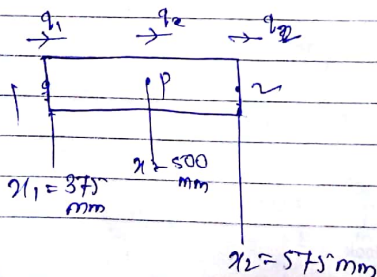 q₁ qₓ q₂
1 P 2
x = 500
mm
x₁ = 375
mm
x₂ = 575 mm